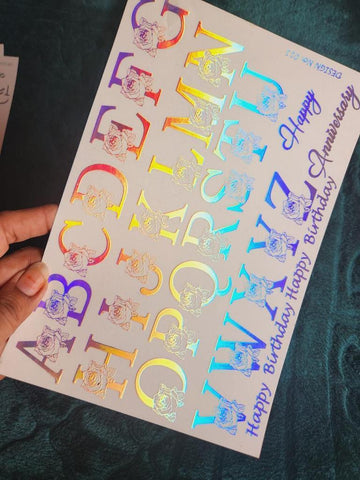 DESIGN No
A B C D E F G
H I J K L M N
O P Q R S T U
V W X Y Z
Happy
Anniversary
Happy Birthday Happy Birthday